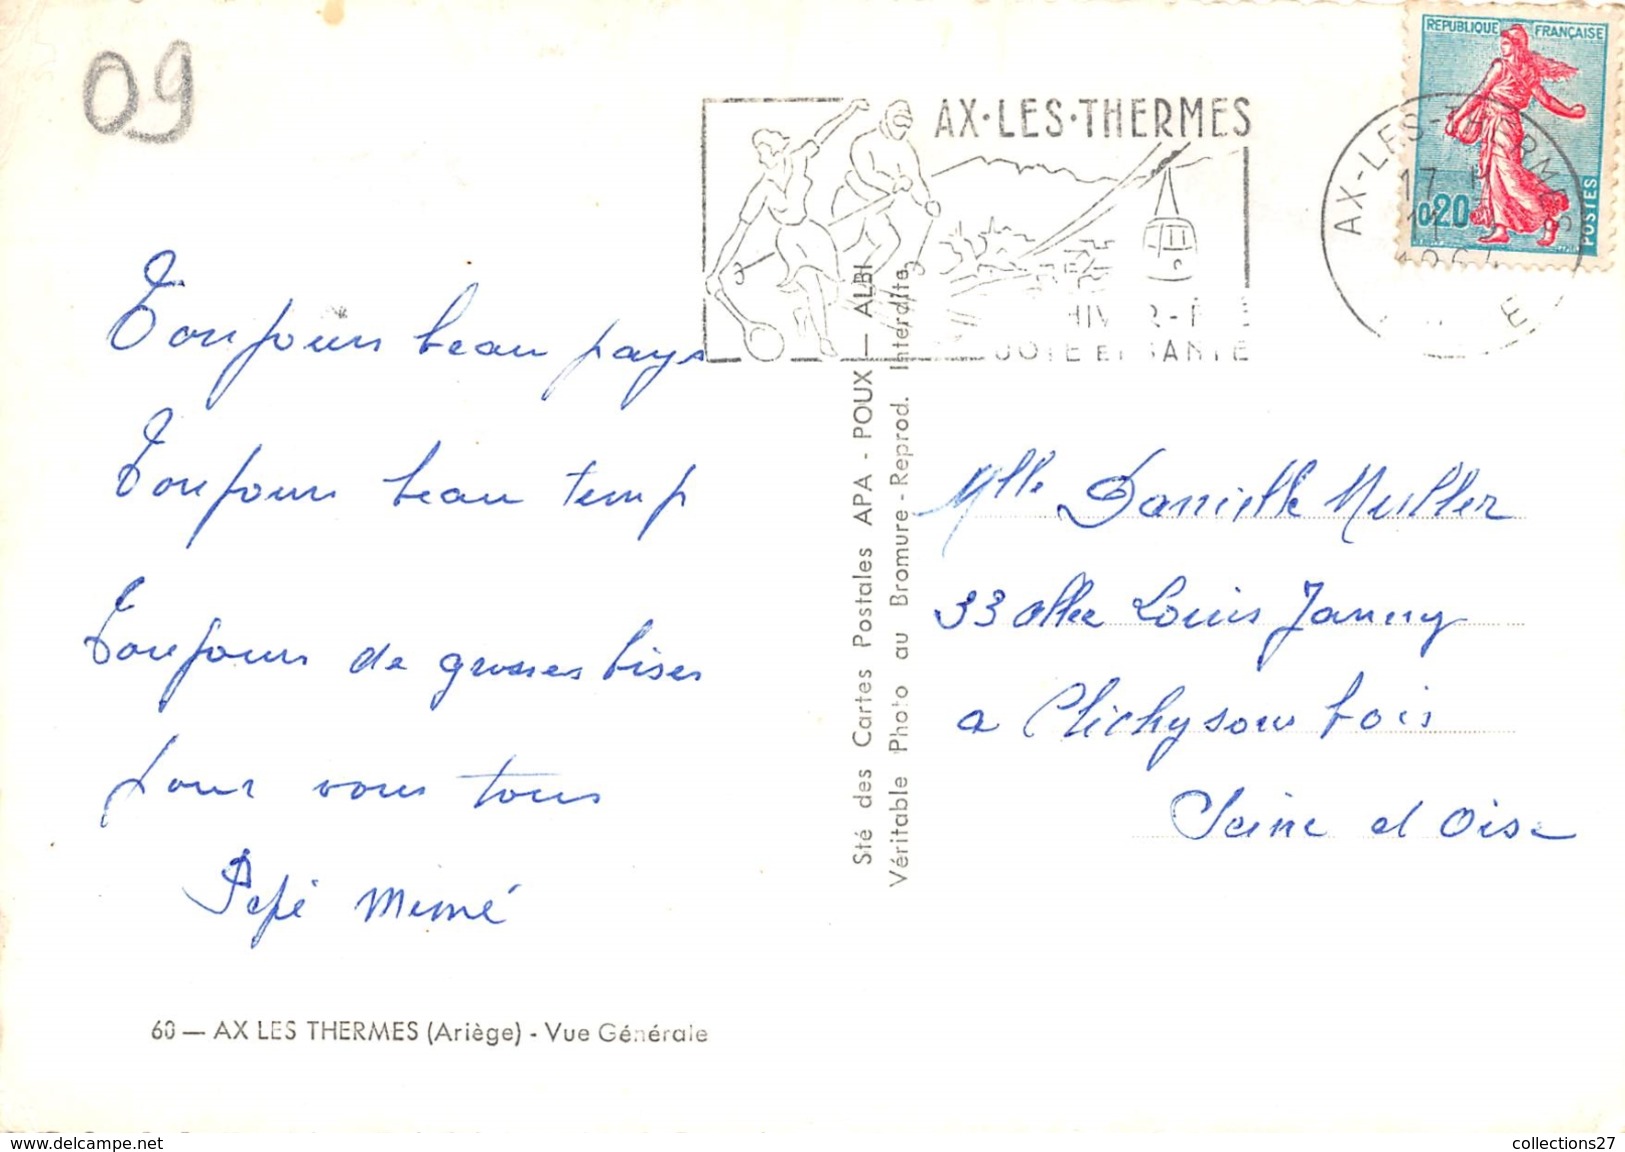 09
AX·LES·THERMES
HIVER-ÉTÉ
JOIE ET SANTÉ
REPUBLIQUE FRANÇAISE
0,20
POSTES
AX-LES-THERMES
17 H
1964
Toujours beau pays
Toujours beau temp
Toujours de grosses bises
pour vous tous
Pepé Memé
60 — AX LES THERMES (Ariège) - Vue Générale
Sté des Cartes Postales APA - POUX — ALBI
Véritable Photo au Bromure - Reprod. Interdite
Mlle Danielle Muller
33 allée Louis Janny
a Clichysous bois
Seine et Oise
www.delcampe.net
collections27